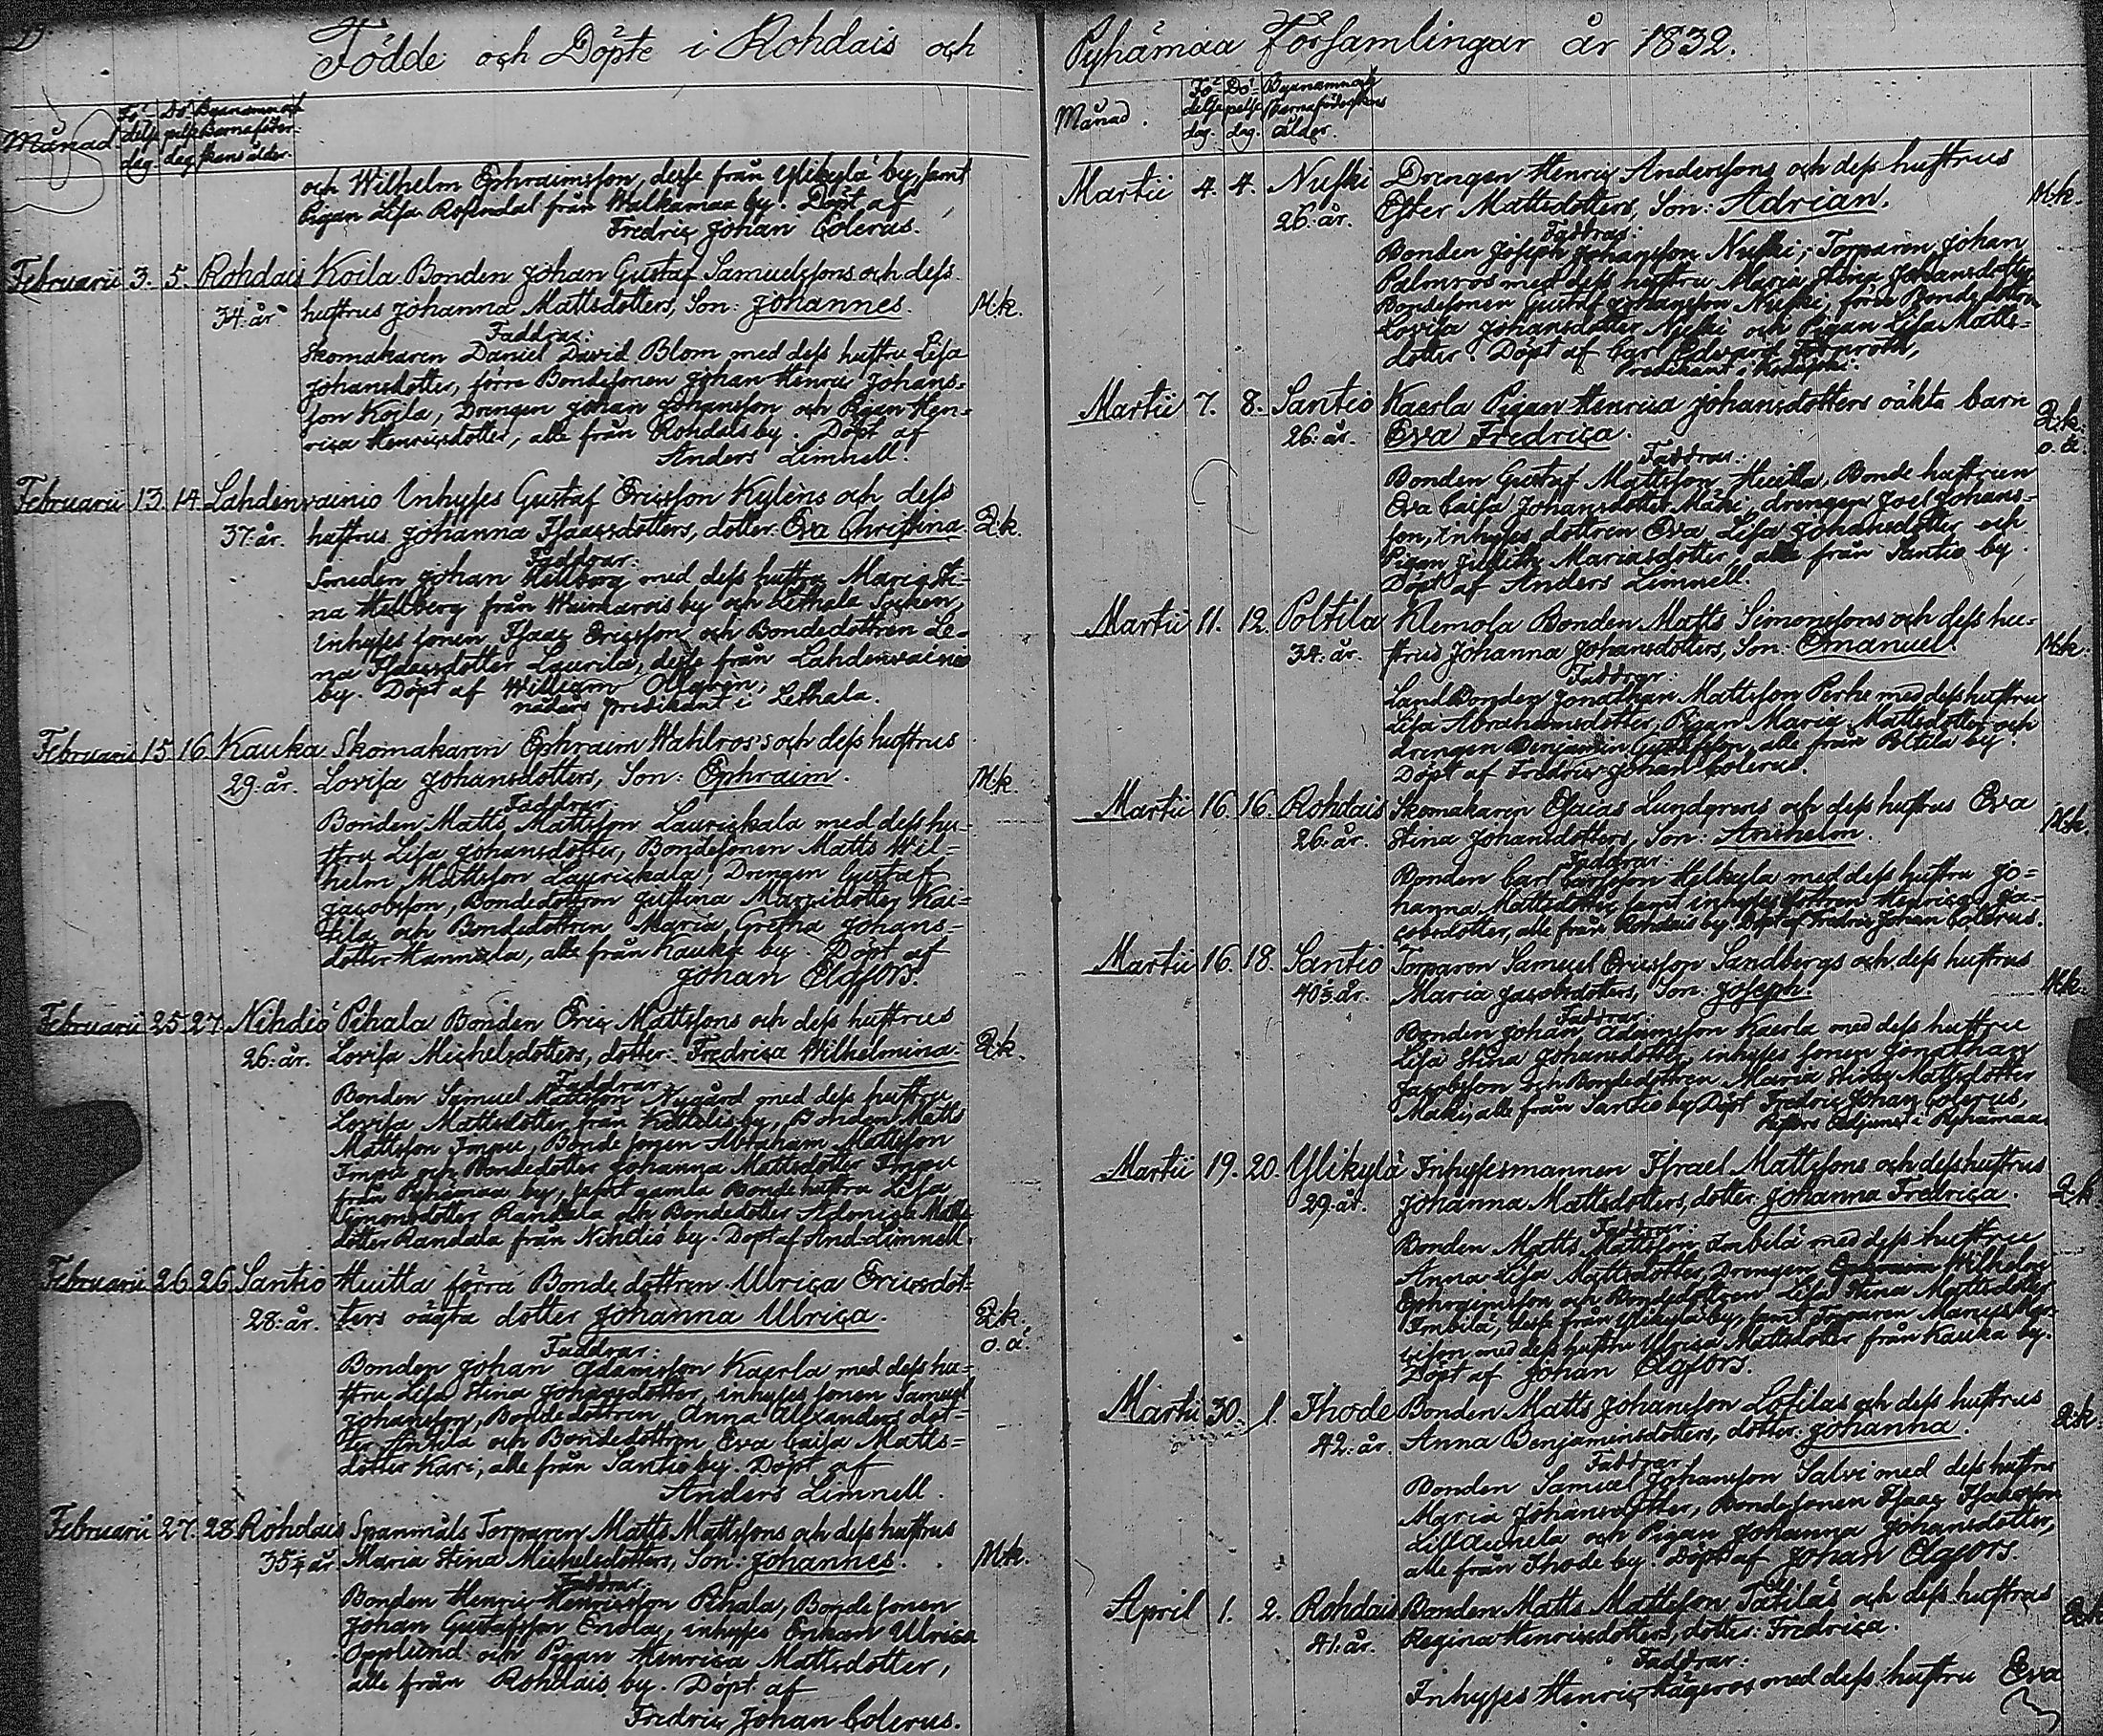 Födde och Döpte i Rohdais och
Månad Fö- delse dag. Dö- pelse dag Byanamn och Barnaföder- skans ålder.
och Wilhelm Ephraimsson, desse från Ylikylä by, samt
Pigan Lisa Rosendal från Walkamaa by. Döpt af
Fredric Johan Colerus.
Februarii 3. 5. Rohdais Koila Bonden Johan Gustaf Samuelssons och dess
34. år hustrus Johanna Mattsdotters, Son: Johannes. M.k.
Faddrar:
Skomakaren Daniel David Blom med dess hustru Lisa
Johansdotter, förre Bondesonen Johan Henric Johans-
son Koila, Drengen Johan Johansson och Pigan Hen-
rica Henricsdotter, alle från Rohdais by. Döpt af
Anders Limnell.
Februarii 13. 14. Lahdenvainio Inhyses Gustaf Ericsson Kyléns och dess
37. år. hustrus Johanna Isaacsdotters, dotter: Eva Christina. Q.k.
Faddrar:
Smeden Johan Hellberg med dess hustru Maria Sti-
na Hellberg från by och Lethala Socken,
Inhyses sonen Isaac Ericsson och Bondedottren Le-
na Isaacsdotter Laurila, desse från Lahdenvainio
by. Döpt af William
nåders predikant i Lethala.
Februarii 15. 16. Kauka Skomakaren Ephraim Wahlros's och dess hustrus
29. år. Lovisa Johansdotters, Son: Ephraim. M.k.
Faddrar:
Bonden Matts Mattsson Laurickala med dess hu-
stru Lisa Johansdotter, Bondesonen Matts Wil-
helm Mattsson Laurickala, Drengen Gustaf
Jacobsson, Bondedottren Justina Kai-
tila och Bondedottren Maria Gretha Johans-
dotter Hannula, alle från Kauka by. Döpt af
Johan Elgfors.
Februarii 25. 27. Nihdiö Pihala Bonden Eric Mattssons och dess hustrus
26. år. Lovisa Michelsdotters, dotter: Fredrica Wilhelmina. Q.k.
Faddrar
Bonden Samuel Mattsson Nygård med dess hustru
Lovisa Mattsdotter från Kettelis by, Bonden Matts
Mattsson Impu, Bonde sonen Abraham Mattsson
Impu och Bondedotter Johanna Mattsdotter Impu
från Pyhämaa by, samt gamla Bonde hustru Lisa
Simonsdotter Randala och Bondedotter Matts
dotter Randala från Nihdiö by. Döpt af And. Limnell.
Februarii 26. 26. Santio Huitta förra Bonde dottren Ulrica Ericsdot-
28. år. ters oägta dotter Johanna Ulrica. Q.k.
o. ä.
Faddrar:
Bonden Johan Adamsson Kaerla med dess hu-
stru Lisa Stina Johansdotter, inhyses sonen Samuel
Johansson, Bondedottren Anna Alexanders dot-
ter Antila och Bondedottren Eva Caisa Matts-
dotter Kari, alle från Santio by. Döpt af
Anders Limnell.
Februarii 27. 28. Rohdais Spannmåls Torparen Matts Mattssons och dess hustrus
35½ år. Maria Stina Michelsdotters, Son: Johannes. M.k.
Faddrar.
Bonden Henric Henricsson Pihala, Bonde sonen
Johan Gustafsson Endla, inhyses Enkan Ulrica
Opplund och Pigan Henrica Mattsdotter,
alle från Rohdais by. Döpt af
Fredric Johan Colerus.
Pyhämaa Församlingar år 1832.
Månad. Fö- delse dag. Dö- pelse dag. Byanamn och Barnaföderskans ålder.
Martii 4. 4. Nuski Drengen Henric Anderssons och dess hustrus
26. år. Ester Mattsdotters, Son: Adrian. M.k.
Faddrar:
Bonden Joseph Johansson Nuski; Torparen Johan
Palmros med dess hustru Maria Johansdotter
Bondesonen Gustaf Johansson Nuski, förre Bondedottren
Lovisa Johansdotter Nuski och Pigan Lisa Matts-
dotter. Döpt af Carl Edvard
Predikant i
Martii 7. 8. Santio Kaerla Pigan Henrica Johansdotters oäkta barn
26. år. Eva Fredrica. Q.k.
o. ä.
Faddrar:
Bonden Gustaf Mattsson Huitta, Bonde hustrun
Eva Caisa Johansdotter Mäki, drengen Joel Johans-
son, Inhyses dottren Eva Lisa Johansdotter och
Pigan Judith Mariasdotter, alle från Santio by.
Döpt af Anders Limnell.
Martii 11. 12. Poltila Klemola Bonden Matts Simonssons och dess hu-
34. år. strus Johanna Johansdotters, Son: Emanuel. M.k.
Faddrar:
Landbonden Jonathan Mattsson Perhe med dess hustru
Lisa Abrahamsdotter, Pigan Maria Mattsdotter och
drengen Benjamin Gustafsson, alle från Poltila by.
Döpt af Fredric Johan Colerus.
Martii 16. 16. Rohdais Skomakaren Esaias Lundgrens och dess hustrus Eva
26. år. Stina Johansdotters, Son: Anshelm. M.k.
Faddrar:
Bonden Carl Carlsson Helkyla med dess hustru Jo-
hanna Mattsdotter, samt inhyses dottren Henrica Ja-
cobsdotter, alle från Rohdais by. Döpt af Fredric Johan Colerus.
Martii 16. 18. Santio Torparen Samuel Ericsson Sandbergs och dess hustrus
40½ år. Maria Jacobsdotters, Son: Joseph. M.k.
Faddrar:
Bonden Johan Adamsson Kaerla med dess hustru
Lisa Stina Johansdotter, inhyses sonen Jonathan
Jacobsson och Bondedottren Maria Stina Mattsdotter
Mäki, alle från Santio by. Döpt Fredric Johan Colerus,
Pastors Adjunct i Pyhämaa.
Martii 19. 20. Ylikylä Inhysesmannen Israel Mattssons och dess hustrus
29. år. Johanna Mattsdotters, dotter Johanna Fredrica. Q.k.
Faddrar:
Bonden Matts Mattsson Imbilä med dess hustru
Anna Lisa Mattsdotter, Drengen Wilhelm
Ephraimsson och Bondedottren Lisa Stina Mattsdotter
Imbilä, desse från Ylikylä by, samt Torparen Marcus Mar-
cusson med dess hustru Ulrica Mattsdotter från Kauka by.
Döpt af Johan Elgfors.
Martii 30. 1. Ihode Bonden Matts Johansson Löfilas och dess hustrus
42. år. Anna Benjaminsdotters, dotter: Johanna. Q.k.
Faddrar
Bonden Samuel Johansson Salvi med dess hustru
Maria Johansdotter, Bondesonen Isaac Isaacsson
och Pigan Johanna Johansdotter,
alle från Ihode by. Döpt af Johan Elgfors.
April 1. 2. Rohdais Bonden Matts Mattsson Tätiläs och dess hustrus
41. år. Regina Henricsdotters, dotter: Fredrica. Q.k.
Faddrar:
Inhyses Henric Hägeros med dess hustru Eva